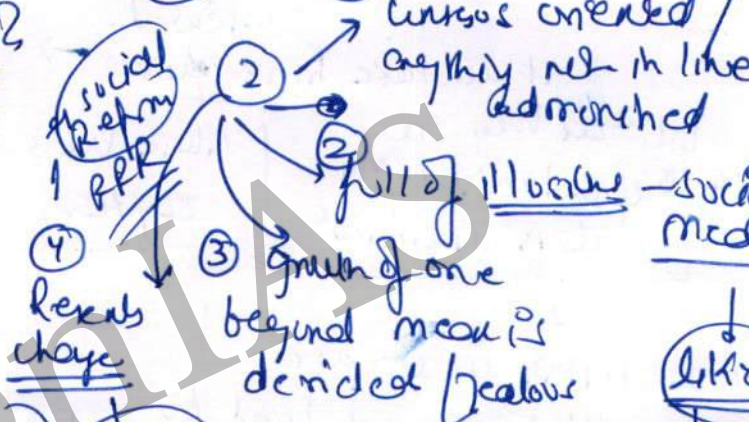 2
social
Reform
RRR
oriented /
anything not in line
admonished
②
full of illusions — soci
med
③ growth of one
beyond mean is
derided / jealous
④
Resents
change
like
nIAS